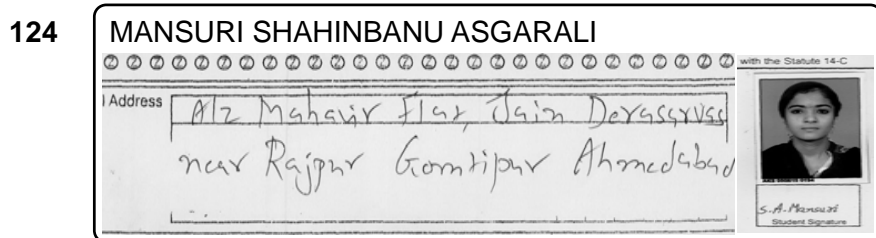 124 MANSURI SHAHINBANU ASGARALI
with the Statute 14-C
Address A/2 Mahavir Flat, Jain Derasarvas
near Rajpur Gomtipur Ahmedabad
S.A. Mansuri
Student Signature